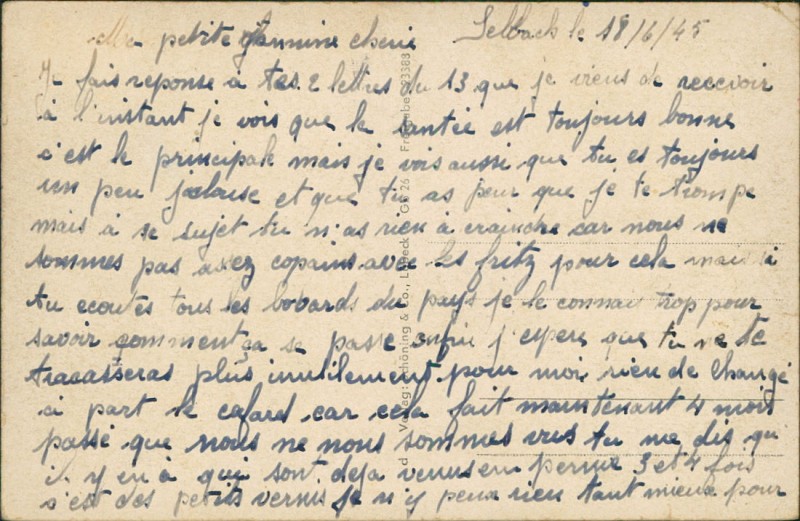 Ma petite Jannine cherie Selbach le 18/6/45
Je fais reponse à tes 2 lettres du 13 que je viens de recevoir
à l'instant je vois que la santée est toujours bonne
c'est le principale mais je vois aussi que tu es toujours
un peu jalouse et que tu as peur que je te trompe
mais à se sujet tu n'as rien à craindre car nous ne
sommes pas assez copains avec les fritz pour cela mais si
tu ecoutes tous les bobards du pays je le connais trop pour
savoir comment ça se passe enfin j'espere que tu ne te
tracasseras plus inutilement pour moi rien de changé
à part le cafard car cela fait maintenant 4 mois
passé que nous ne nous sommes vus tu me dis qu
il y en à qui sont deja venus en perme 3 et 4 fois
s'est des petits vernis je n'y peux rien tant mieux pour
Verlag: Schöning & Co., Lübeck